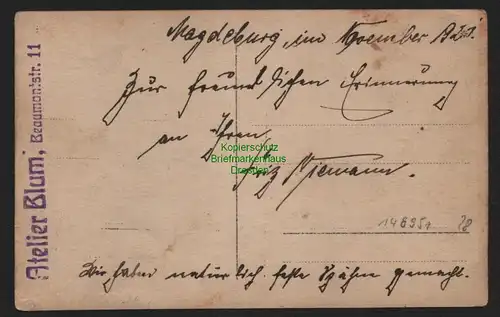 Magdeburg, im November 192
Zur freundlichen Erinnerung
an Ihren
Fritz Niemann.
Wir haben natürlich feste Späne gemacht.
Atelier Blum, Beaumontstr. 11
Kopierschutz
Briefmarkenhaus
Dresden